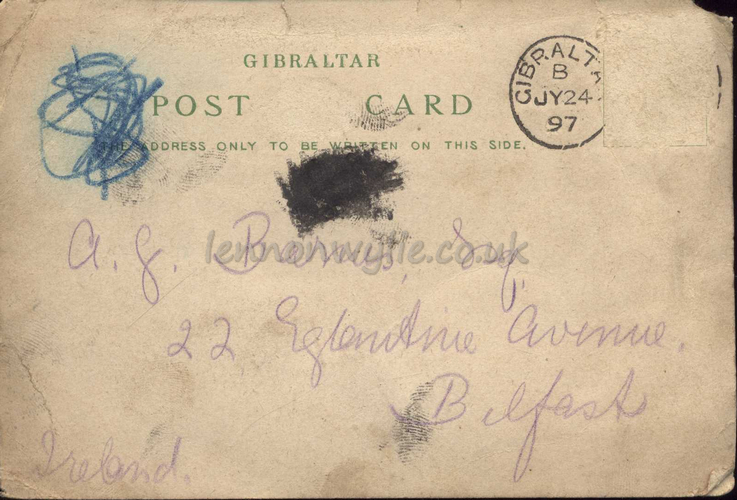 GIBRALTAR
POST CARD
THE ADDRESS ONLY TO BE WRITTEN ON THIS SIDE.
GIBRALTA
B
JY24
97
lennonwylie.co.uk
A. G. Esq.
22 Eglantine Avenue.
Belfast
Ireland.